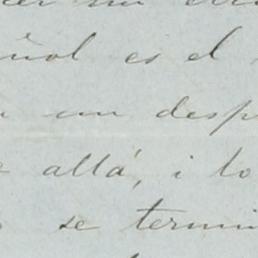 ñol es el
un desp
allá, i lo
se termin